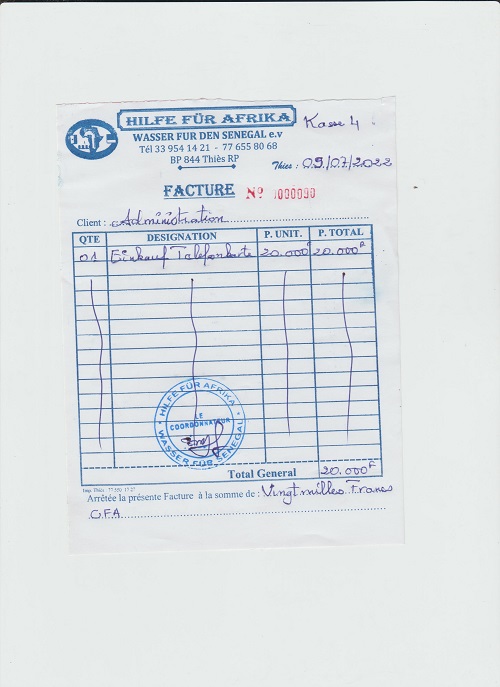 HILFE FÜR AFRIKA
Kasse 4
WASSER FUR DEN SENEGAL e.v
Tél 33 954 14 21 - 77 655 80 68
BP 844 Thiès RP
Thies : 05/07/2022
FACTURE Nº
Client : Administration
QTE DESIGNATION P. UNIT. P. TOTAL
01 Einkauf Telefonkarte 20.000F 20.000F
HILFE FÜR AFRIKA
LE
COORDONNATEUR
WASSER FÜR SENEGAL
Total General 20.000F
Arrêtée la présente Facture à la somme de : Vingt milles Francs
CFA